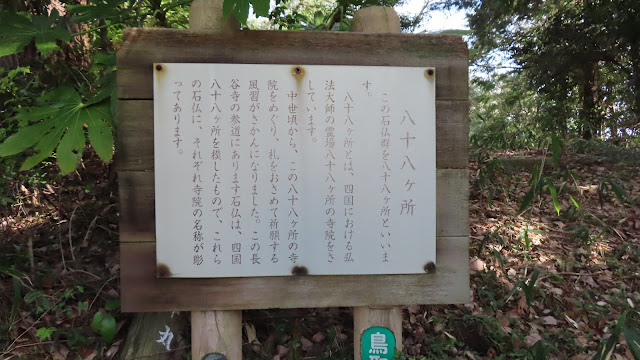 八十八ヶ所
この石仏群を八十八ヶ所といいま
す。
八十八ヶ所とは、四国における弘
法大師の霊場八十八ヶ所の寺院をさ
しています。
中世頃から、この八十八ヶ所の寺
院をめぐり、札をおさめて祈願する
風習がさかんになりました。この長
谷寺の参道にあります石仏は、四国
八十八ヶ所を模したもので、これら
の石仏に、それぞれ寺院の名称が彫
ってあります。
鳥